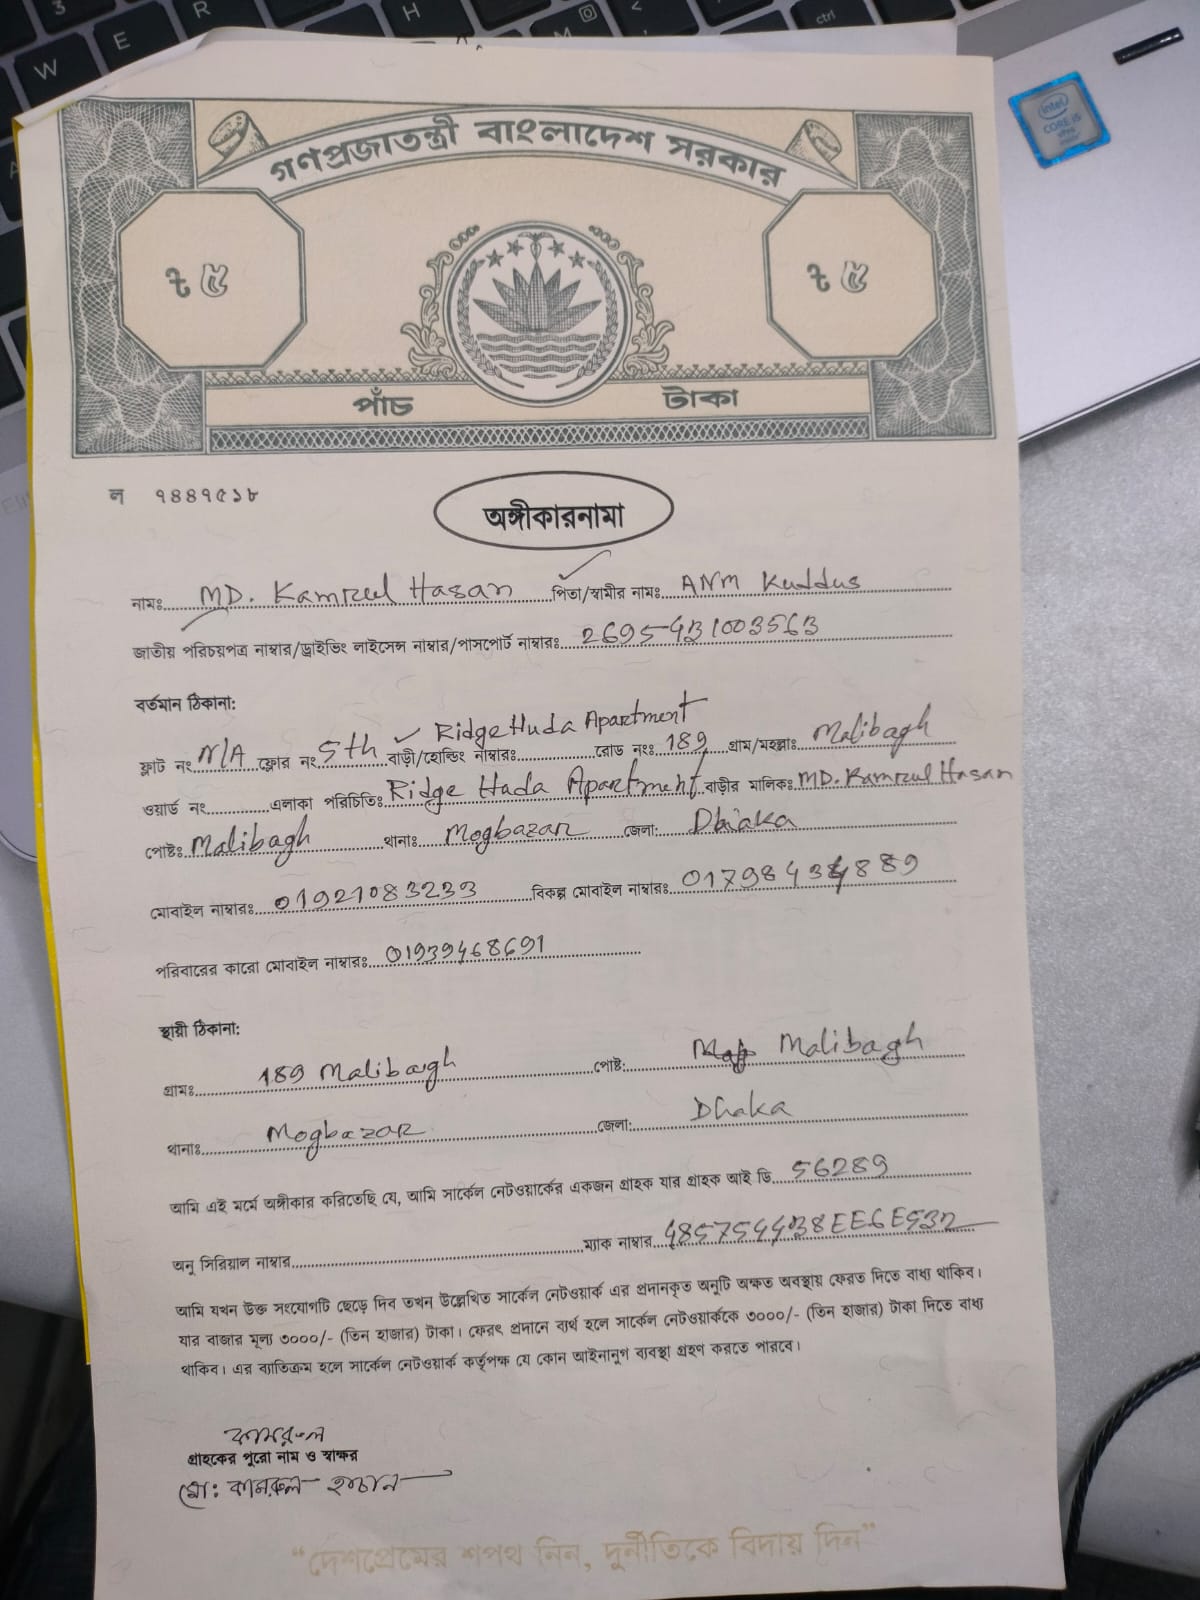 গণপ্রজাতন্ত্রী বাংলাদেশ সরকার
৳ ৫ ৳ ৫
পাঁচ টাকা
ল ৭৪৪৭৫১৮
অঙ্গীকারনামা
নামঃ MD. Kamrul Hasan পিতা/স্বামীর নামঃ ANM Kuddus
জাতীয় পরিচয়পত্র নাম্বার/ড্রাইভিং লাইসেন্স নাম্বার/পাসপোর্ট নাম্বারঃ 2695431003563
বর্তমান ঠিকানা:
ফ্লাট নং N/A ফ্লোর নং 5th বাড়ী/হোল্ডিং নাম্বারঃ Ridge Huda Apartment রোড নংঃ 189 গ্রাম/মহল্লাঃ Malibagh
ওয়ার্ড নং এলাকা পরিচিতিঃ Ridge Huda Apartment বাড়ীর মালিকঃ MD. Kamrul Hasan
পোষ্টঃ Malibagh থানাঃ Mogbazar জেলা: Dhaka
মোবাইল নাম্বারঃ 01921083233 বিকল্প মোবাইল নাম্বারঃ
পরিবারের কারো মোবাইল নাম্বারঃ 01939468691
স্থায়ী ঠিকানা:
গ্রামঃ 189 Malibagh পোষ্ট: Malibagh
থানাঃ Mogbazar জেলা: Dhaka
আমি এই মর্মে অঙ্গীকার করিতেছি যে, আমি সার্কেল নেটওয়ার্কের একজন গ্রাহক যার গ্রাহক আই ডি 56289
অনু সিরিয়াল নাম্বার ম্যাক নাম্বার
আমি যখন উক্ত সংযোগটি ছেড়ে দিব তখন উল্লেখিত সার্কেল নেটওয়ার্ক এর প্রদানকৃত অনুটি অক্ষত অবস্থায় ফেরত দিতে বাধ্য থাকিব।
যার বাজার মূল্য ৩০০০/- (তিন হাজার) টাকা। ফেরৎ প্রদানে ব্যর্থ হলে সার্কেল নেটওয়ার্ককে ৩০০০/- (তিন হাজার) টাকা দিতে বাধ্য
থাকিব। এর ব্যতিক্রম হলে সার্কেল নেটওয়ার্ক কর্তৃপক্ষ যে কোন আইনানুগ ব্যবস্থা গ্রহণ করতে পারবে।
কামরুল
গ্রাহকের পুরো নাম ও স্বাক্ষর
মো: কামরুল হাসান
“দেশপ্রেমের শপথ নিন, দুর্নীতিকে বিদায় দিন”
intel
CORE i5
vPro
3
W
E
R
H
M
<
ctrl